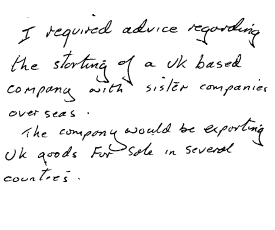 I required advice regarding
the starting of a UK based
company with sister companies
overseas.
The company would be exporting
UK goods For Sale in several
countries.